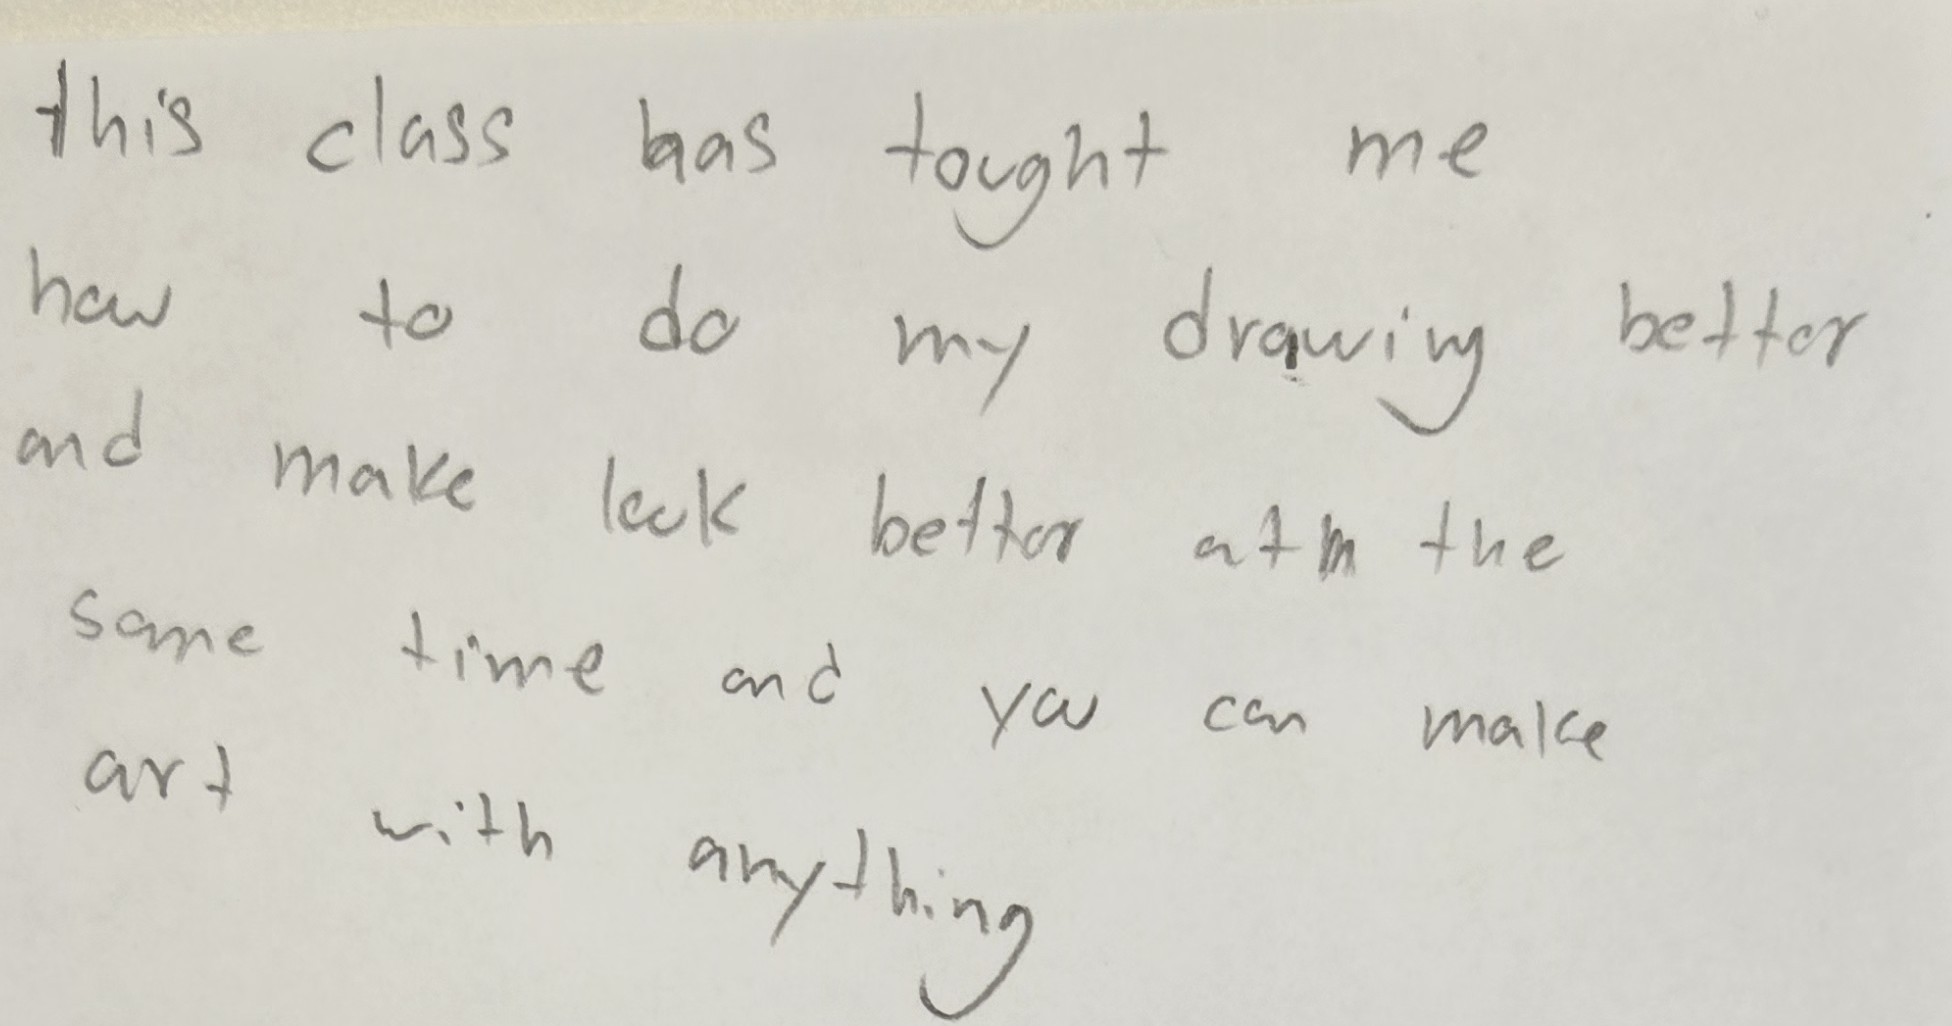 this class has tought me
how to do my drawing better
and make look better at the
same time and you can make
art with anything